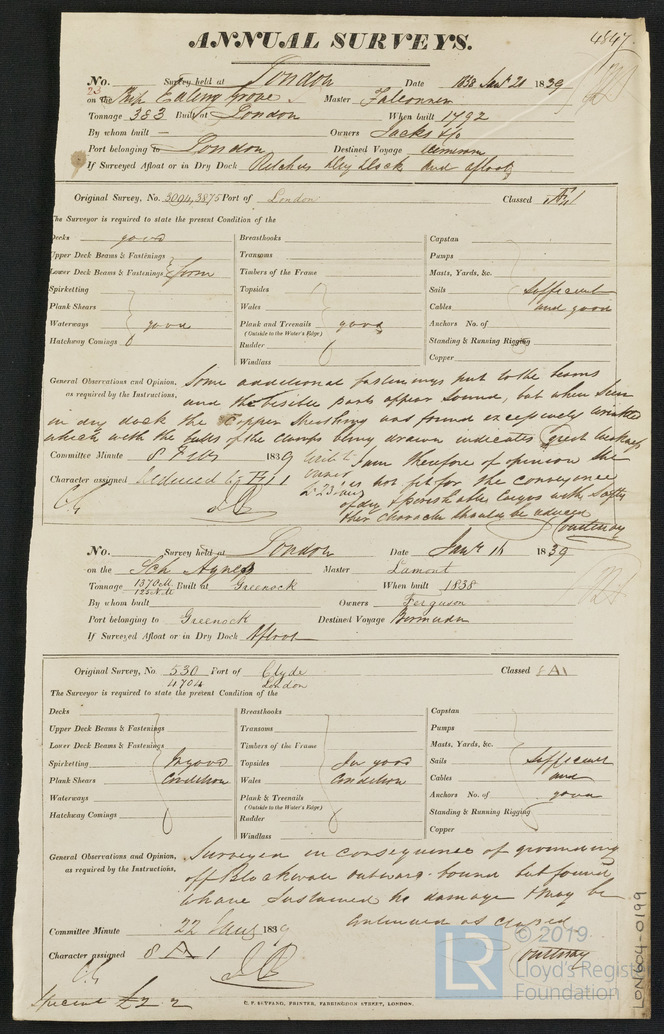 4847
ANNUAL SURVEYS.
No. Survey held at London Date 1838 Jany 20 1839
23 on the Ship Ealing Grove Master Falconner
Tonnage 383 Built at London When built 1792
By whom built — Owners Jacks & Co
Port belonging to London Destined Voyage
If Surveyed Afloat or in Dry Dock Dry Dock and afloat
Original Survey, No. 3094, 3875 Port of London Classed Æ1
The Surveyor is required to state the present Condition of the
Decks good
Upper Deck Beams & Fastenings
Lower Deck Beams & Fastenings firm
Spirketting
Plank Shears
Waterways good
Hatchway Comings
Breasthooks
Transoms
Timbers of the Frame
Topsides
Wales
Plank and Treenails good
(Outside to the Water's Edge)
Rudder
Windlass
Capstan
Pumps
Masts, Yards, &c.
Sails Sufficient
Cables and good
Anchors No. of
Standing & Running Rigging
Copper
General Observations and Opinion, Some additional fastenings put to the beams
as required by the Instructions, and the visible parts appear sound, but when seen
in dry dock the Copper Sheathing was found excessively wrinkled
which with the of the clamps being drawn indicates great weakness
Committee Minute 8 Feby 1839 I am therefore of opinion she
Character assigned reduced to Æ 1 is not fit for the conveyance
of dry & perishable Cargos with Safety
Courtenay
No. Survey held at London Date Jany 16 1839
on the Sch Agnes Master Lamont
Tonnage 137 O.M 125 N.M Built at Greenock When built 1838
By whom built Owners Ferguson
Port belonging to Greenock Destined Voyage Bermuda
If Surveyed Afloat or in Dry Dock Afloat
Original Survey, No. 530 Port of Clyde Classed 8 A1
4704 London
The Surveyor is required to state the present Condition of the
Decks
Upper Deck Beams & Fastenings
Lower Deck Beams & Fastenings
Spirketting In good
Plank Shears Condition
Waterways
Hatchway Comings
Breasthooks
Transoms
Timbers of the Frame
Topsides In good
Wales Condition
Plank & Treenails
(Outside to the Water's Edge)
Rudder
Windlass
Capstan
Pumps
Masts, Yards, &c.
Sails Sufficient
Cables and
Anchors No. of good
Standing & Running Rigging
Copper
General Observations and Opinion, Surveyed in consequence of grounding
as required by the Instructions, off Blackwall outward bound but found
to have sustained no damage & may be
continued as classed
Committee Minute 22 Jany 1839
Character assigned 8 A 1
Courtenay
Special £2.2
PRINTER, FARRINGDON STREET, LONDON.
LON604-0199
LR © 2019
Lloyd's Register
Foundation